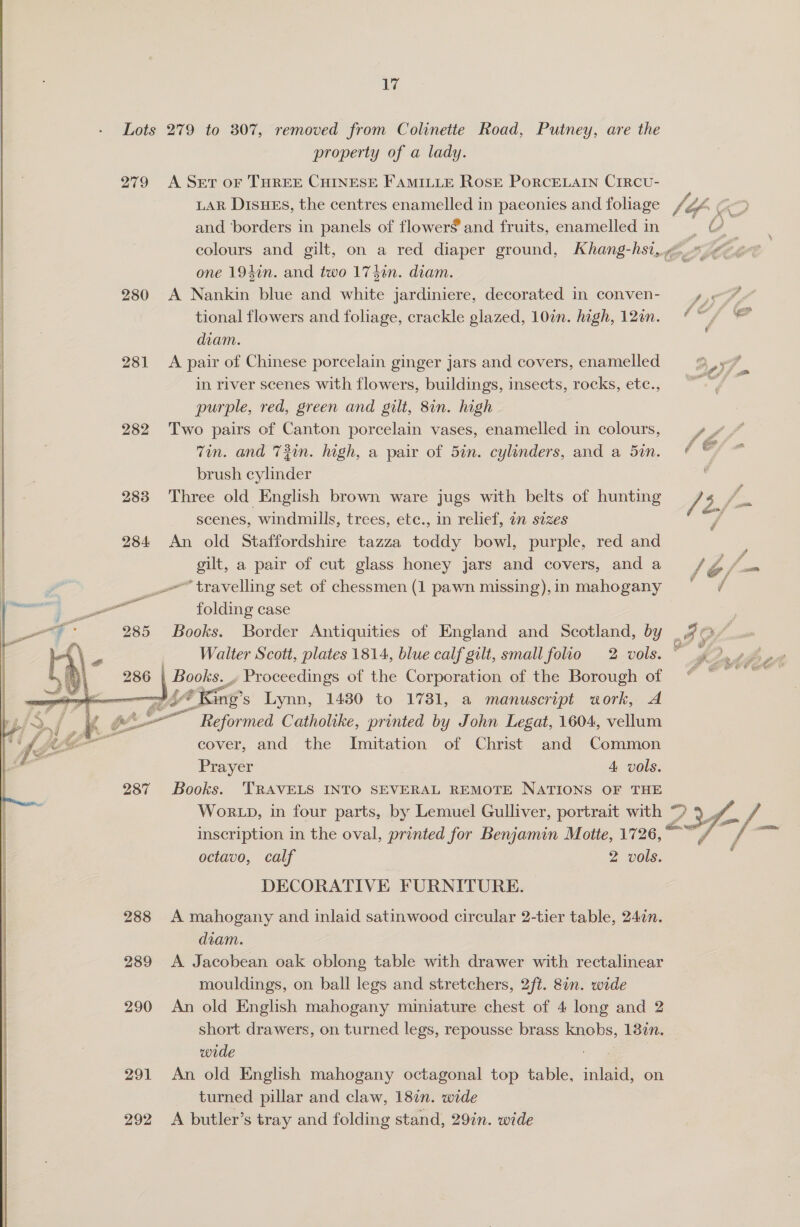 17
Lots 279 to 307, removed from Colinette Road, Putney, are the
property of a lady.
279 A SET OF THREE CHINESE FAMILLE ROSE PORCELAIN CIRCU-
LAR DISHES, the centres enamelled in paeonies and foliage
and borders in panels of flowers and fruits, enamelled in
colours and gilt, on a red diaper ground, Khang-hsi,
one 19½in. and two 17½in. diam.
280 A Nankin blue and white jardiniere, decorated in conven-
tional flowers and foliage, crackle glazed, 10in. high, 12in.
diam.
281 A pair of Chinese porcelain ginger jars and covers, enamelled
in river scenes with flowers, buildings, insects, rocks, etc.,
purple, red, green and gilt, 8in. high
282 Two pairs of Canton porcelain vases, enamelled in colours,
7in. and 7¾in. high, a pair of 5in. cylinders, and a 5in.
brush cylinder
283 Three old English brown ware jugs with belts of hunting
scenes, windmills, trees, etc., in relief, in sizes
284 An old Staffordshire tazza toddy bowl, purple, red and
gilt, a pair of cut glass honey jars and covers, and a
travelling set of chessmen (1 pawn missing), in mahogany
folding case
285 Books. Border Antiquities of England and Scotland, by
Walter Scott, plates 1814, blue calf gilt, small folio 2 vols.
286 Books. Proceedings of the Corporation of the Borough of
King's Lynn, 1430 to 1731, a manuscript work, A
Reformed Catholike, printed by John Legat, 1604, vellum
cover, and the Imitation of Christ and Common
Prayer 4 vols.
287 Books. TRAVELS INTO SEVERAL REMOTE NATIONS OF THE
WORLD, in four parts, by Lemuel Gulliver, portrait with
inscription in the oval, printed for Benjamin Motte, 1726,
octavo, calf 2 vols.
DECORATIVE FURNITURE.
288 A mahogany and inlaid satinwood circular 2-tier table, 24in.
diam.
289 A Jacobean oak oblong table with drawer with rectalinear
mouldings, on ball legs and stretchers, 2ft. 8in. wide
290 An old English mahogany miniature chest of 4 long and 2
short drawers, on turned legs, repousse brass knobs, 13in.
wide
291 An old English mahogany octagonal top table, inlaid, on
turned pillar and claw, 18in. wide
292 A butler's tray and folding stand, 29in. wide